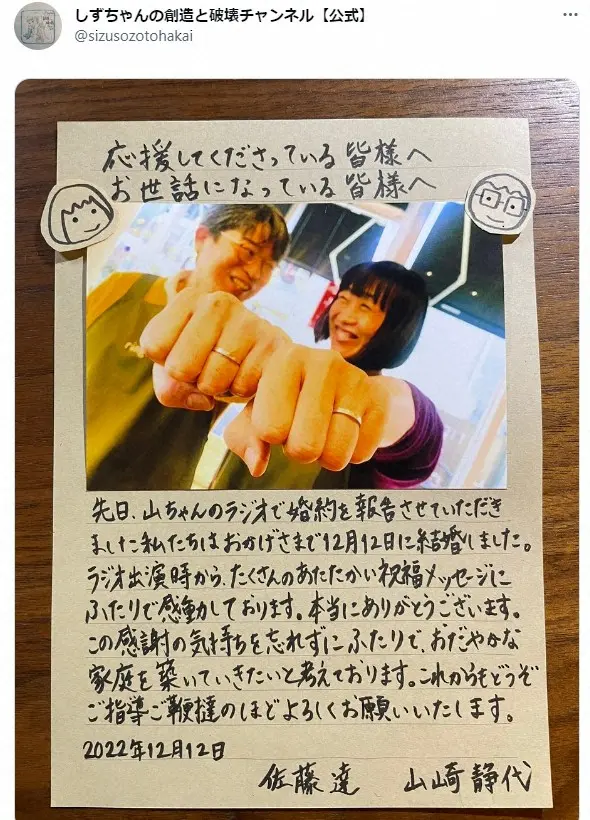 しずちゃんの創造と破壊チャンネル【公式】
@sizusozotohakai
応援してくださっている皆様へ
お世話になっている皆様へ
先日、山ちゃんのラジオで婚約を報告させていただき
ました私たちはおかげさまで12月12日に結婚しました。
ラジオ出演時から、たくさんのあたたかい祝福メッセージに
ふたりで感動しております。本当にありがとうございます。
この感謝の気持ちを忘れずにふたりで、おだやかな
家庭を築いていきたいと考えております。これからもどうぞ
ご指導ご鞭撻のほどよろしくお願いいたします。
2022年12月12日
佐藤達 山崎静代